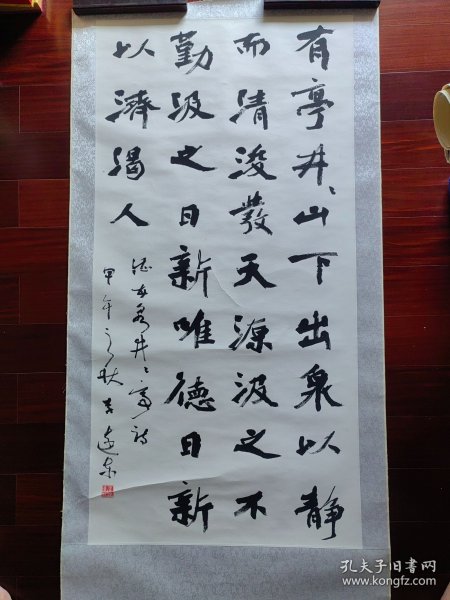 有亭井〻山下出泉以静
而清浚發天源汲之不
勤汲之日新唯德日新
以濟渴人
井〻亭詩
甲午之秋
孔夫子旧书网
www.kongfz.com